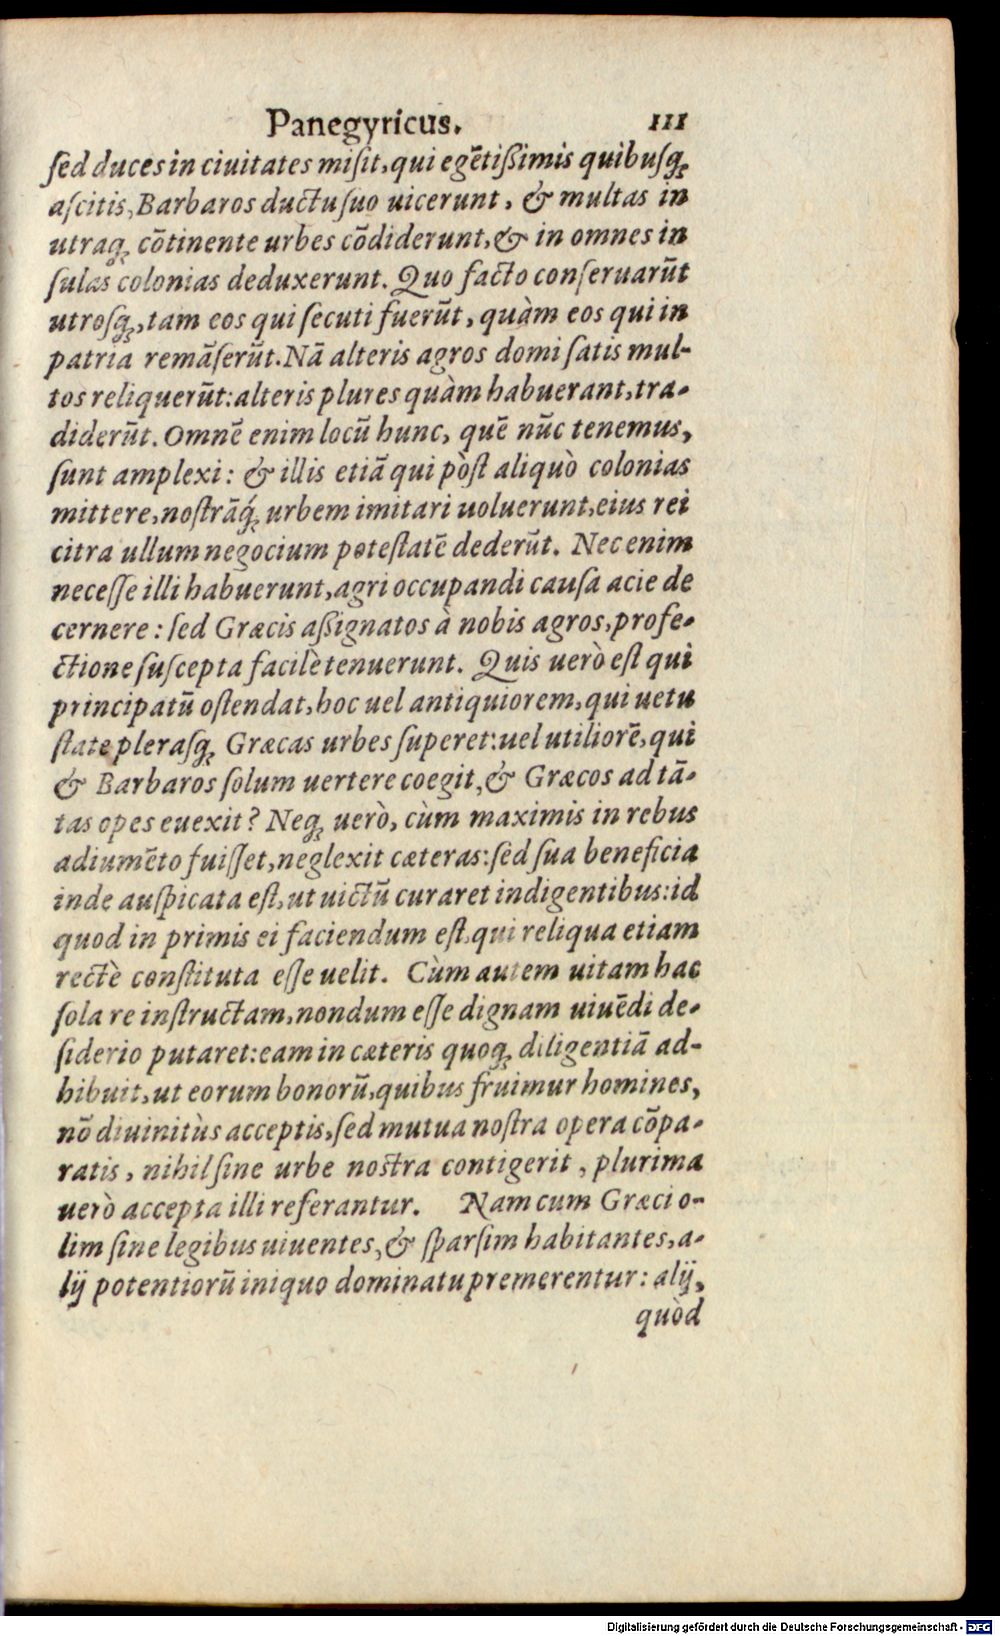 Panegyricus. 111
ſed duces in ciuitates miſit, qui egẽtißimis quibuſq;
aſcitis, Barbaros ductu ſuo uicerunt, & multas in
utraq; cõtinente urbes cõdiderunt, & in omnes in
ſulas colonias deduxerunt. Quo facto conſeruarũt
utroſq;, tam eos qui ſecuti fuerũt, quàm eos qui in
patria remãſerũt. Nã alteris agros domi ſatis mul-
tos reliquerũt: alteris plures quàm habuerant, tra-
diderũt. Omnẽ enim locũ hunc, quẽ nũc tenemus,
ſunt amplexi: & illis etiã qui pòſt aliquò colonias
mittere, noſtrãq́; urbem imitari uoluerunt, eius rei
citra ullum negocium poteſtatẽ dederũt. Nec enim
neceſſe illi habuerunt, agri occupandi cauſa acie de
cernere: ſed Græcis aßignatos à nobis agros, profe-
ctione ſuſcepta facilè tenuerunt. Quis uerò eſt qui
principatũ oſtendat, hoc uel antiquiorem, qui uetu
ſtate pleraſq; Græcas urbes ſuperet: uel utiliorẽ, qui
& Barbaros ſolum uertere coegit, & Græcos ad tã-
tas opes euexit? Neq; uerò, cùm maximis in rebus
adiumẽto fuiſſet, neglexit cæteras: ſed ſua beneficia
inde auſpicata eſt, ut uictũ curaret indigentibus: id
quod in primis ei faciendum eſt, qui reliqua etiam
rectè conſtituta eſſe uelit. Cùm autem uitam hac
ſola re inſtructam, nondum eſſe dignam uiuẽdi de-
ſiderio putaret: eam in cæteris quoq; diligentiã ad-
hibuit, ut eorum bonorũ, quibus fruimur homines,
nõ diuinitùs acceptis, ſed mutua noſtra opera cõpa-
ratis, nihil ſine urbe noſtra contigerit, plurima
uerò accepta illi referantur. Nam cum Græci o-
lim ſine legibus uiuentes, & ſparſim habitantes, a-
lij potentiorũ iniquo dominatu premerentur: alij,
quòd
Digitalisierung gefördert durch die Deutsche Forschungsgemeinschaft - DFG